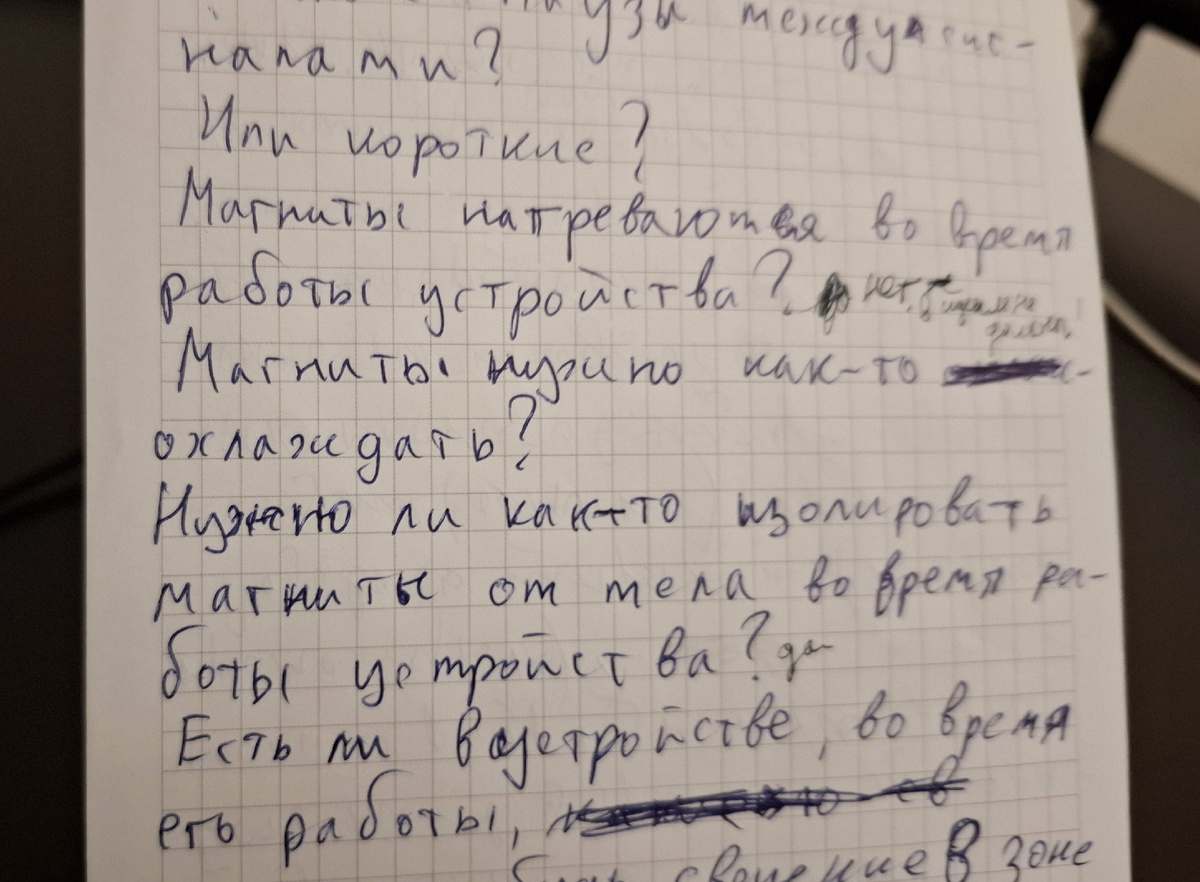 паузы между сиг-
налами?
Или короткие?
Магниты нагреваются во время
работы устройства? нет,
Магниты нужно как-то
охлаждать?
Нужно ли как-то изолировать
магниты от тела во время ра-
боты устройства? да
Есть ли в устройстве, во время
его работы,
свечение в зоне